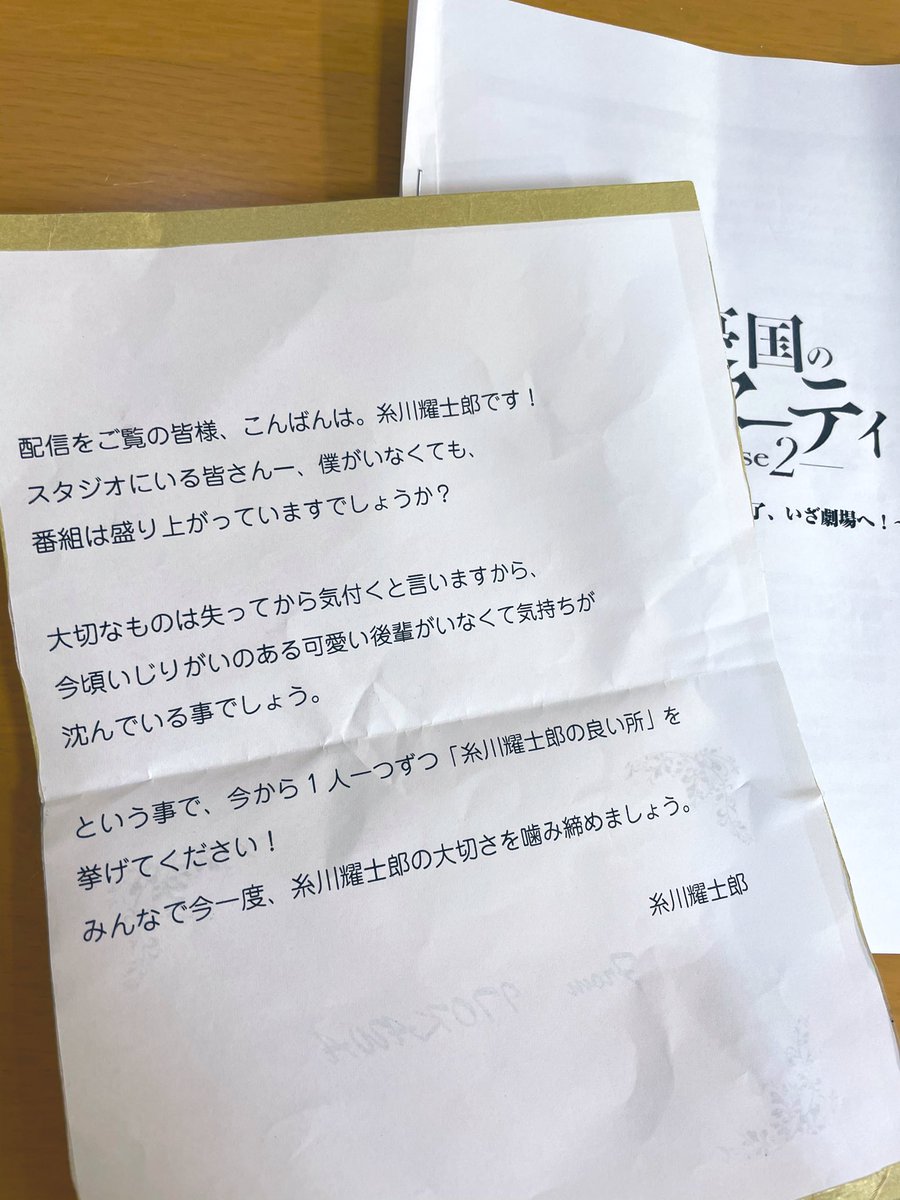 配信をご覧の皆様、こんばんは。糸川耀士郎です！
スタジオにいる皆さんー、僕がいなくても、
番組は盛り上がっていますでしょうか？
大切なものは失ってから気付くと言いますから、
今頃いじりがいのある可愛い後輩がいなくて気持ちが
沈んでいる事でしょう。
という事で、今から１人一つずつ「糸川耀士郎の良い所」を
挙げてください！
みんなで今一度、糸川耀士郎の大切さを噛み締めましょう。
糸川耀士郎
国の
ーティ
se2
了、いざ劇場へ！
From ITOKAWA